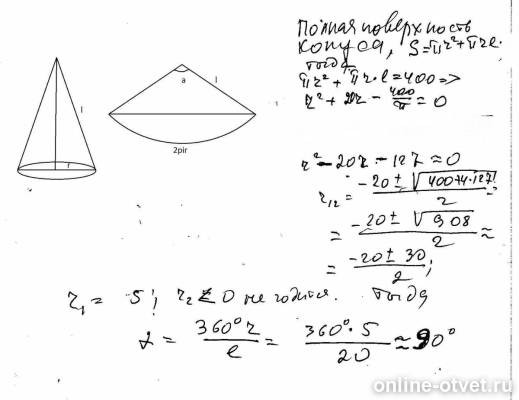 Полная поверхность
конуса, S=πr²+πrl.
тогда
πr²+πr·l=400=>
r²+20r-400/π=0
l
r
a
l
2pir
r²-20r-127≈0
r₁₂=(-20±√(400+4·127))/2=
=(-20±√908)/2≈
=(-20±30)/2;
r₁= 5; r₂<0 не годится. Тогда
α=360°r/l=360°·5/20≈90°
online-otvet.ru